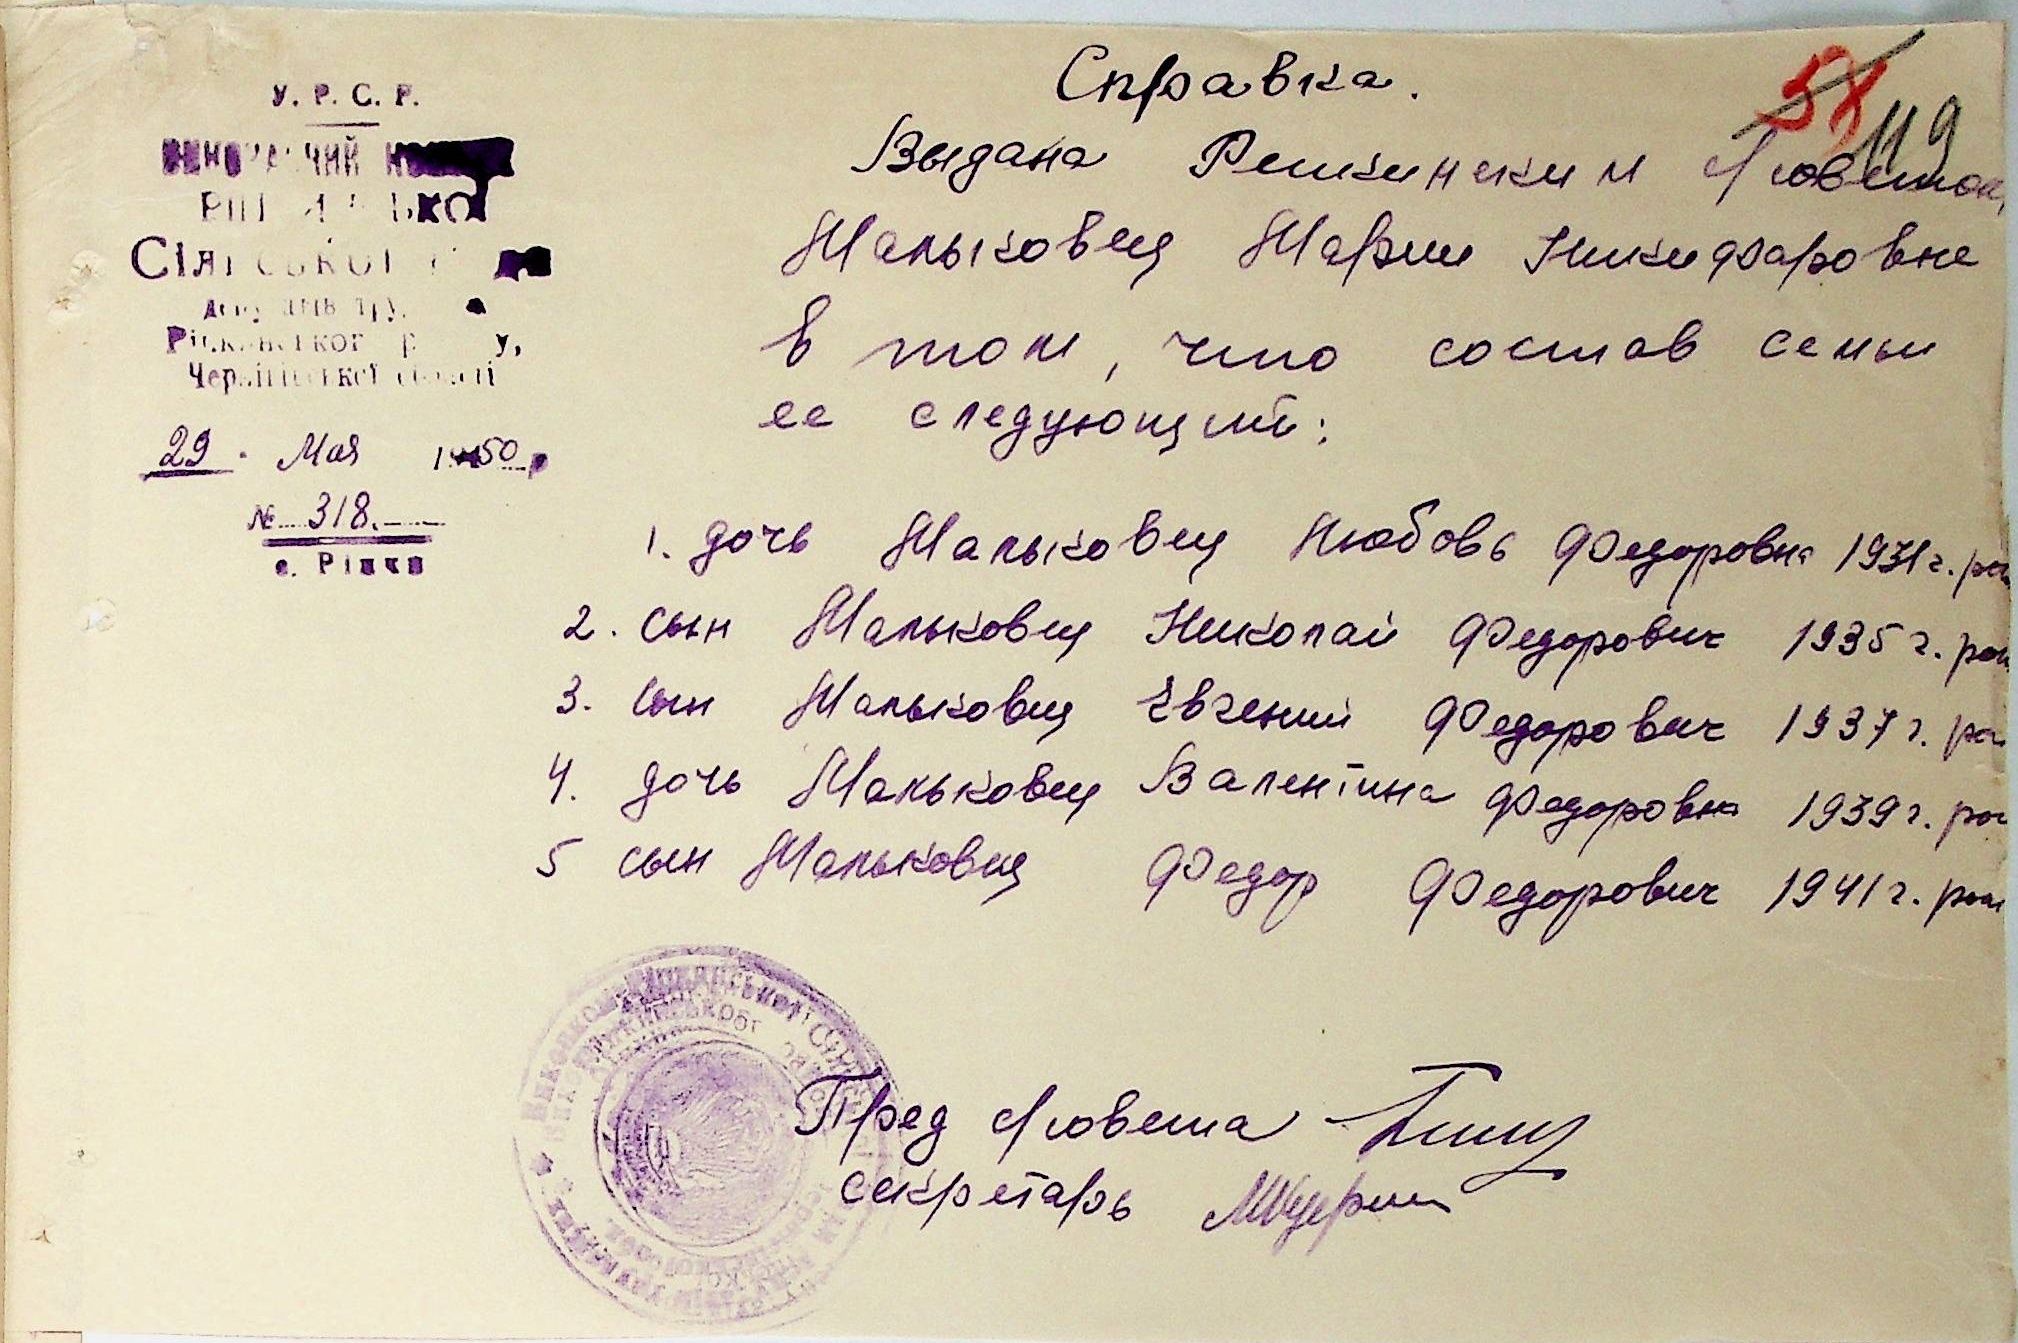 У. Р. С. Р.
29 Мая 1950 р
№ 318.
с. Ріпки
58
119
Справка.
Выдана Репкинским с/советом,
Мальковец Марии Никифаровне
в том, что состав семьи
ее следующий:
1. дочь Мальковец Любовь Федоровна 1931 г. рож
2. сын Мальковец Николай Федорович 1935 г. рож
3. сын Мальковец Евгений Федорович 1937 г. рож
4. дочь Мальковец Валентина Федоровна 1939 г. рож
5 сын Мальковец Федор Федорович 1941 г. рож
Пред с/совета
секретарь